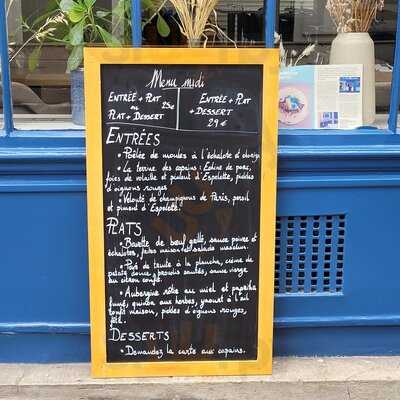 Menu midi
ENTRÉE + PLAT
ou
PLAT + DESSERT
25€
ENTRÉE + PLAT
+ DESSERT
29 €
ENTRÉES
• Poêlée de moules à l'échalote et
• La terrine des copains : Echine de porc,
foies de volaille et piment d'Espelette, pickles
d'oignons rouges
• Velouté de champignons de Paris, persil
et piment d'Espelette
PLATS
• Bavette de bœuf grillé, sauce poivre et
échalotes, frites maison et salade mesclun.
• Pavé de truite à la plancha, crème de
patate douce, brocolis sautés, sauce vierge
au citron confit.
• Aubergine rôtie au miel et paprika
fumé, quinoa aux herbes, yaourt à l'ail
maison, pickles d'oignons rouges,
DESSERTS
• Demandez la carte aux copains.